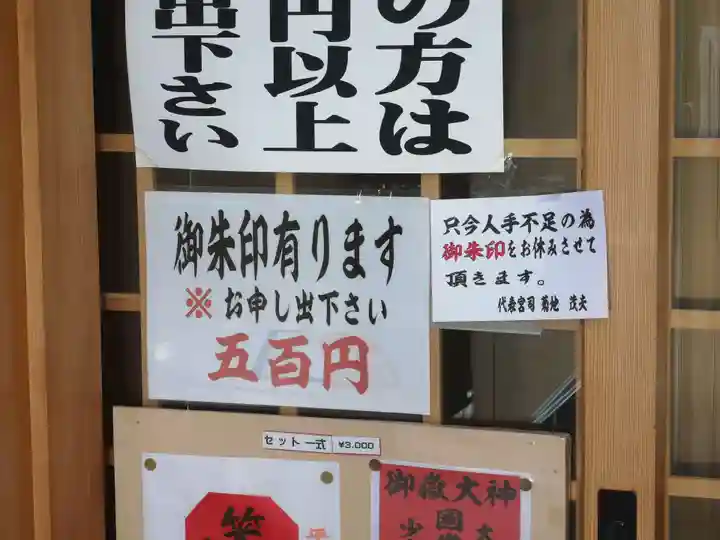 の方は
円以上
出下さい
御朱印有ります
※お申し出下さい
五百円
只今人手不足の為
御朱印をお休みさせて
頂きます。
代表宮司 菊地 茂夫
セット一式 ¥3.000
御嶽大神